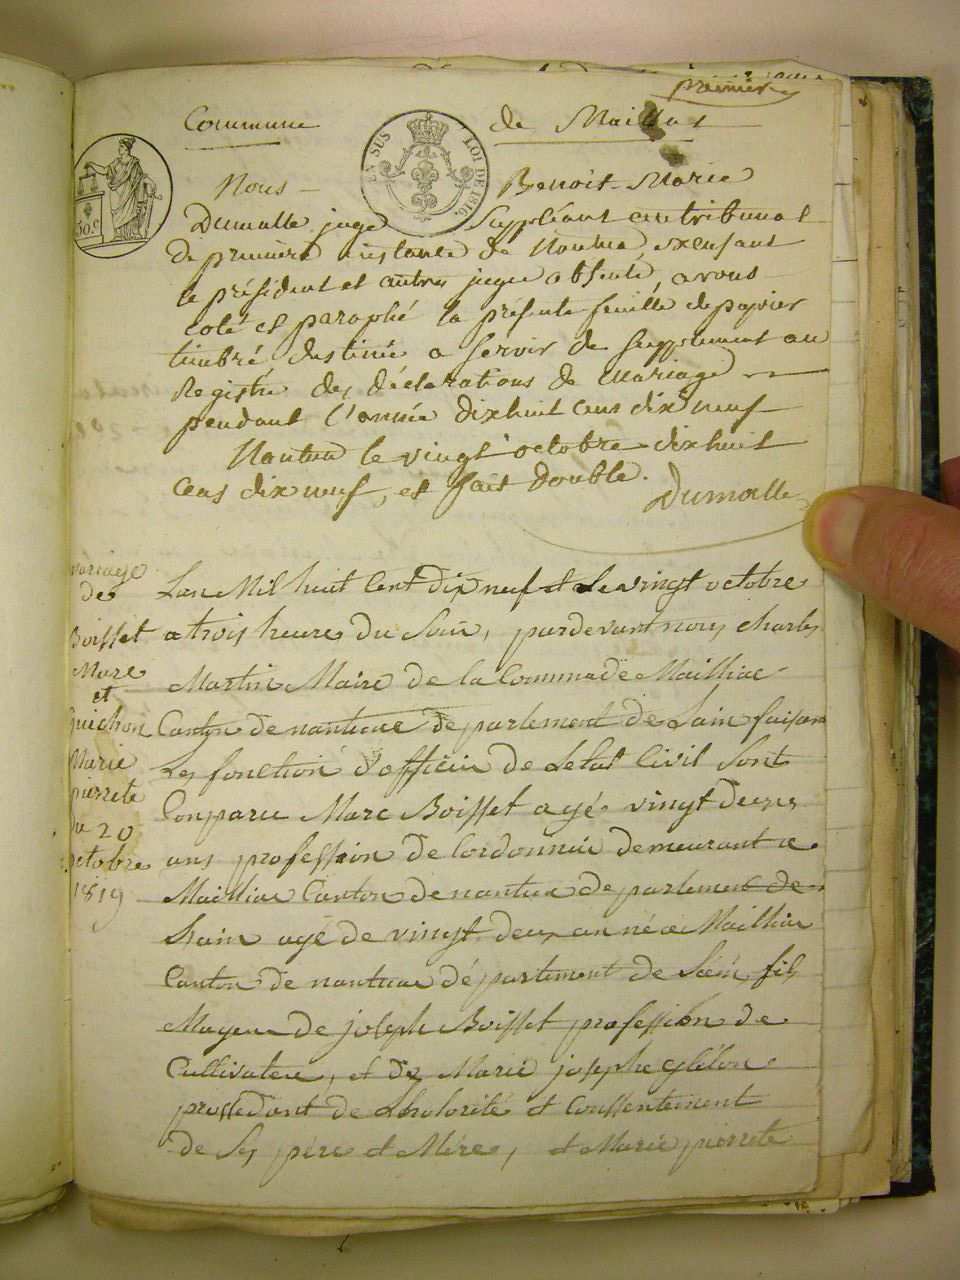 première
Commune de Maillat
EN SUS LOI DE 1816.
50.c
Nous Benoit-Marie
Dumolle juge Suppléant au tribunal
de première instance de Nantua exensant
le président et autres juges absents, avons
coté et paraphé la présente feuille de papier
timbré destinée a servir de supplement au
Registre des déclarations de Mariage
pendant l'année dixhuit cens dix neuf
Nantua le vingt octobre dixhuit
Cens dix neuf, et fait Double.
Dumolle
Mariage
de
Boisset
Marc
et
Guichon
Marie
pierrete
du 20
octobre
1819
Lan Mil huit Cent Dix neuf et Le vingt octobre
a trois heure du Soir, pardevant nous charles
Martin Maire de la Commune de Mailliac
Canton de nantuae departement de Lain faisant
Les fonction d'officier de Letat Civil Sont
Comparu Marc Boisset agé vingt deux
ans profession de Cordonnier demeurant a
Mailliac Canton de nantua departement de
Lain agé de vingt deux an né a Mailliac
Canton de nantuae département de Lain, fils
Majeur de joseph Boisset profession de
Cultivateur, et de Marie josephe
procedant de Lhotorité et Conssentement
de Ses père et Mère, et Marie pierrete